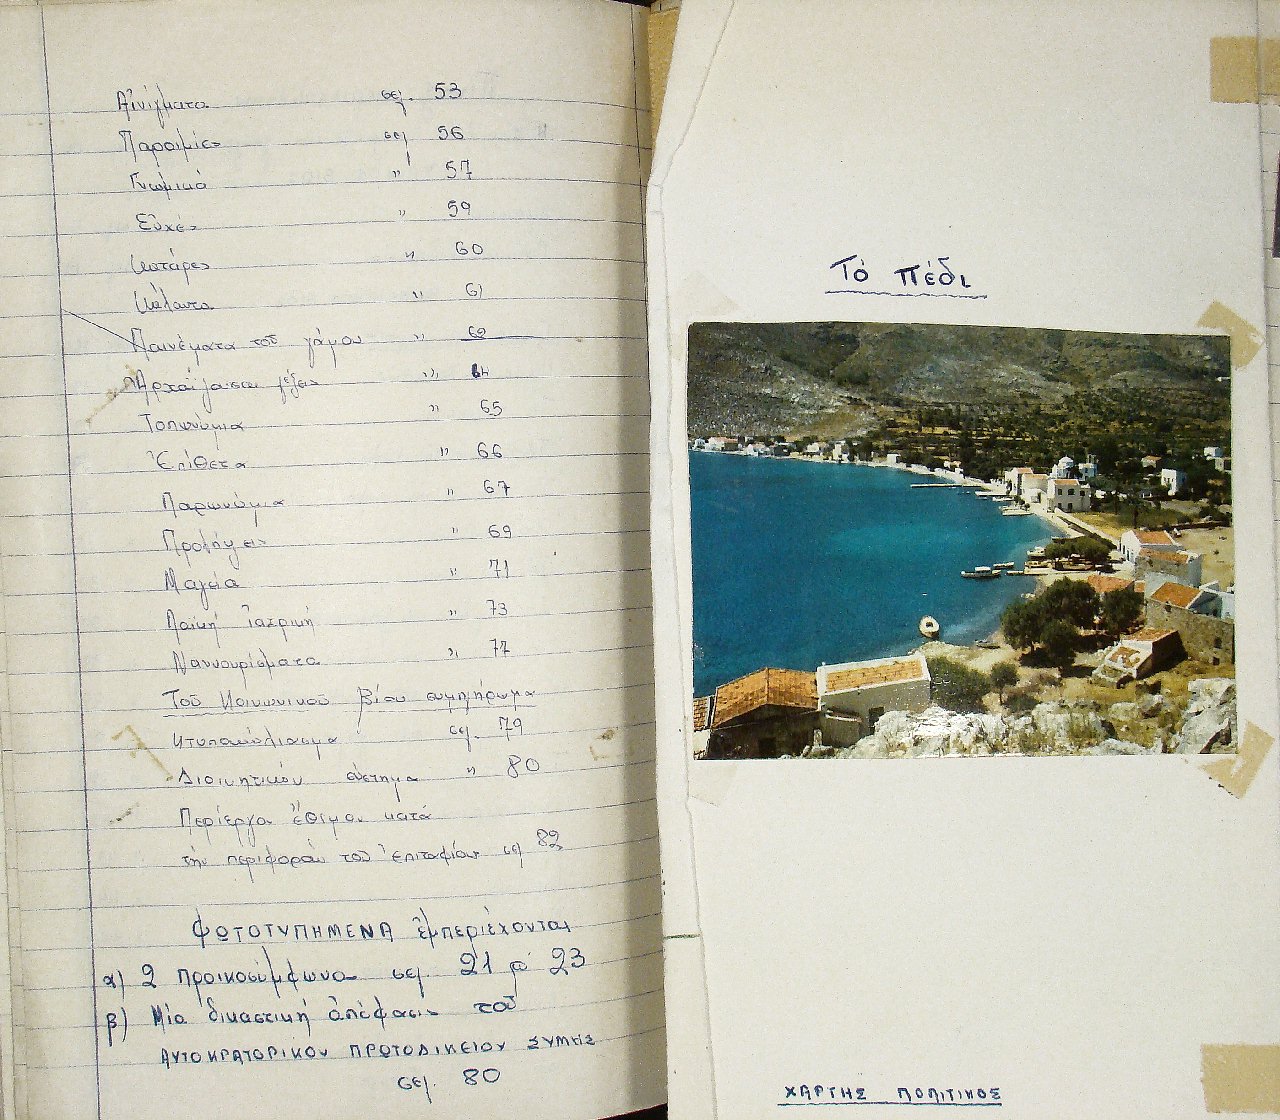 Αἰνίγματα σελ. 53
Παροιμίες σελ 56
Γνωμικά " 57
Εὐχές " 59
Κατάρες " 60
Κάλαντα " 61
Παινέματα τοῦ γάμου " 62
Ἀρχαῖαι λέξεις " 64
Τοπωνύμια " 65
Ἐπίθετα " 66
Παρωνύμια " 67
Προλήψεις " 69
Μαγεία " 71
Λαϊκή Ἰατρική " 73
Νανουρίσματα " 77
Τοῦ Κοινωνικοῦ βίου συμπλήρωμα
σελ. 79
Διοικητικόν σύστημα " 80
Περίεργον ἔθιμον κατά
τήν περιφοράν τοῦ Ἐπιταφίου σελ 82
ΦΩΤΟΤΥΠΗΜΕΝΑ ἐμπεριέχονται
α) 2 προικοσύμφωνα σελ. 21 23
β) Μία δικαστική ἀπόφασις τοῦ
ΑΥΤΟΚΡΑΤΟΡΙΚΟΥ ΠΡΩΤΟΔΙΚΕΙΟΥ ΣΥΜΗΣ
σελ. 80
Τό Πέδι
ΧΑΡΤΗΣ ΠΟΛΙΤΙΚΟΣ